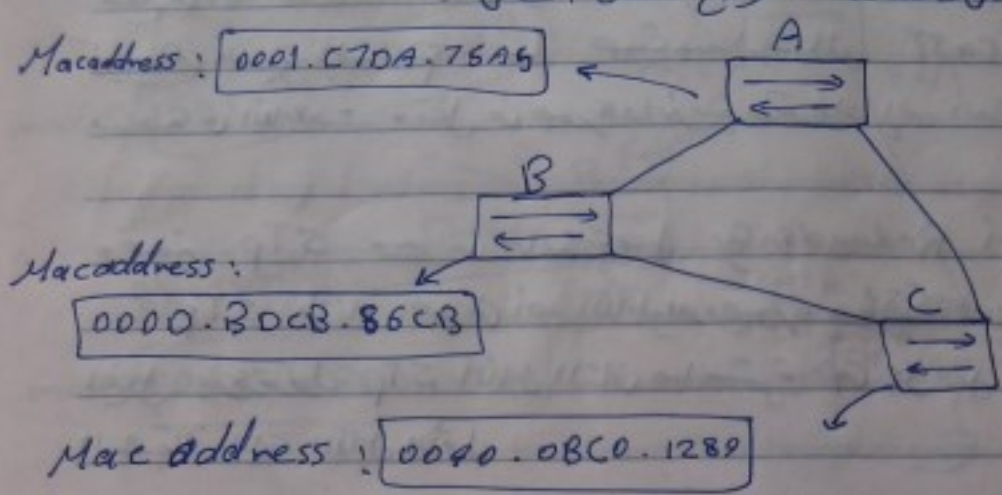 A
Macaddress: 0001.C7DA.75A5
B
Macaddress:
000D.BDCB.86CB
C
Mac address: 0040.0BC0.1289